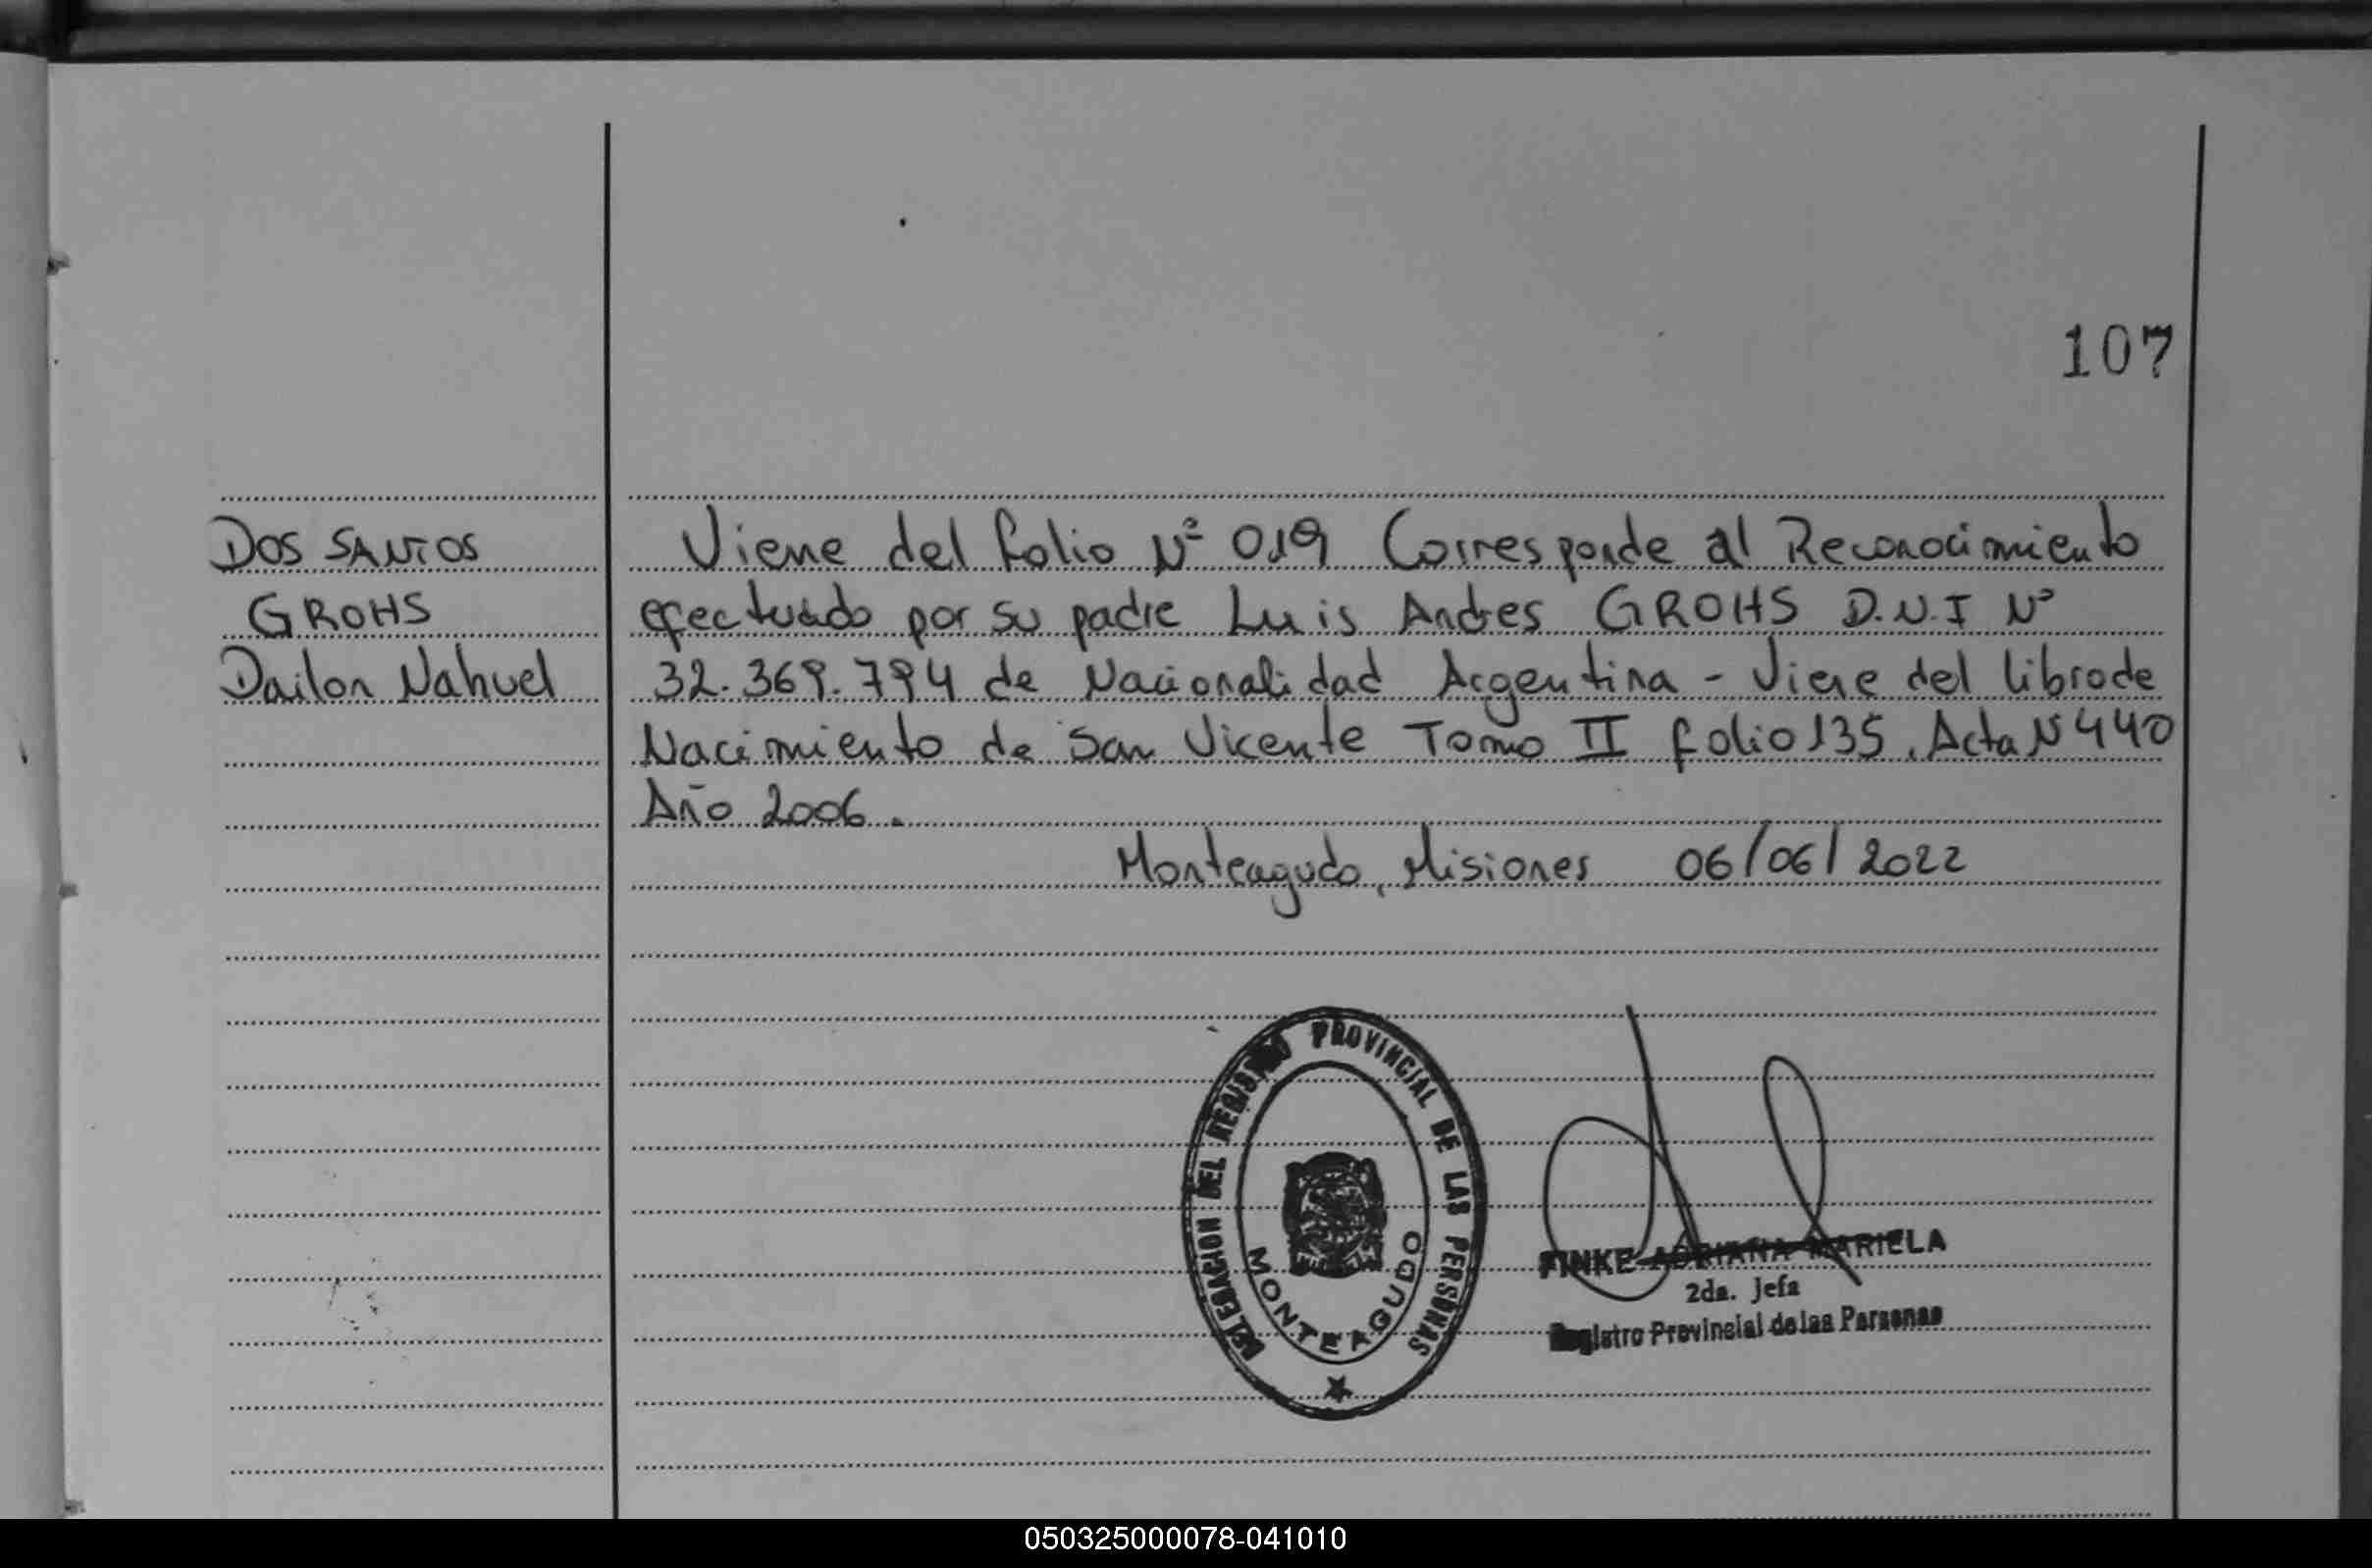 107
DOS SANTOS
GROHS
Dailon Nahuel
Viene del folio Nº 019 Corresponde al Reconocimiento
efectuado por su padre Luis Andres GROHS D.N.I Nº
32.369.794 de Nacionalidad Argentina - Viene del libro de
Nacimiento de San Vicente Tomo II folio 135. Acta N 440
Año 2006.
Monteagudo, Misiones 06/06/2022
DELEGACION DEL REGISTRO PROVINCIAL DE LAS PERSONAS
MONTEAGUDO
FINKE ADRIANA MARIELA
2da. Jefa
Registro Provincial de las Personas
050325000078-041010